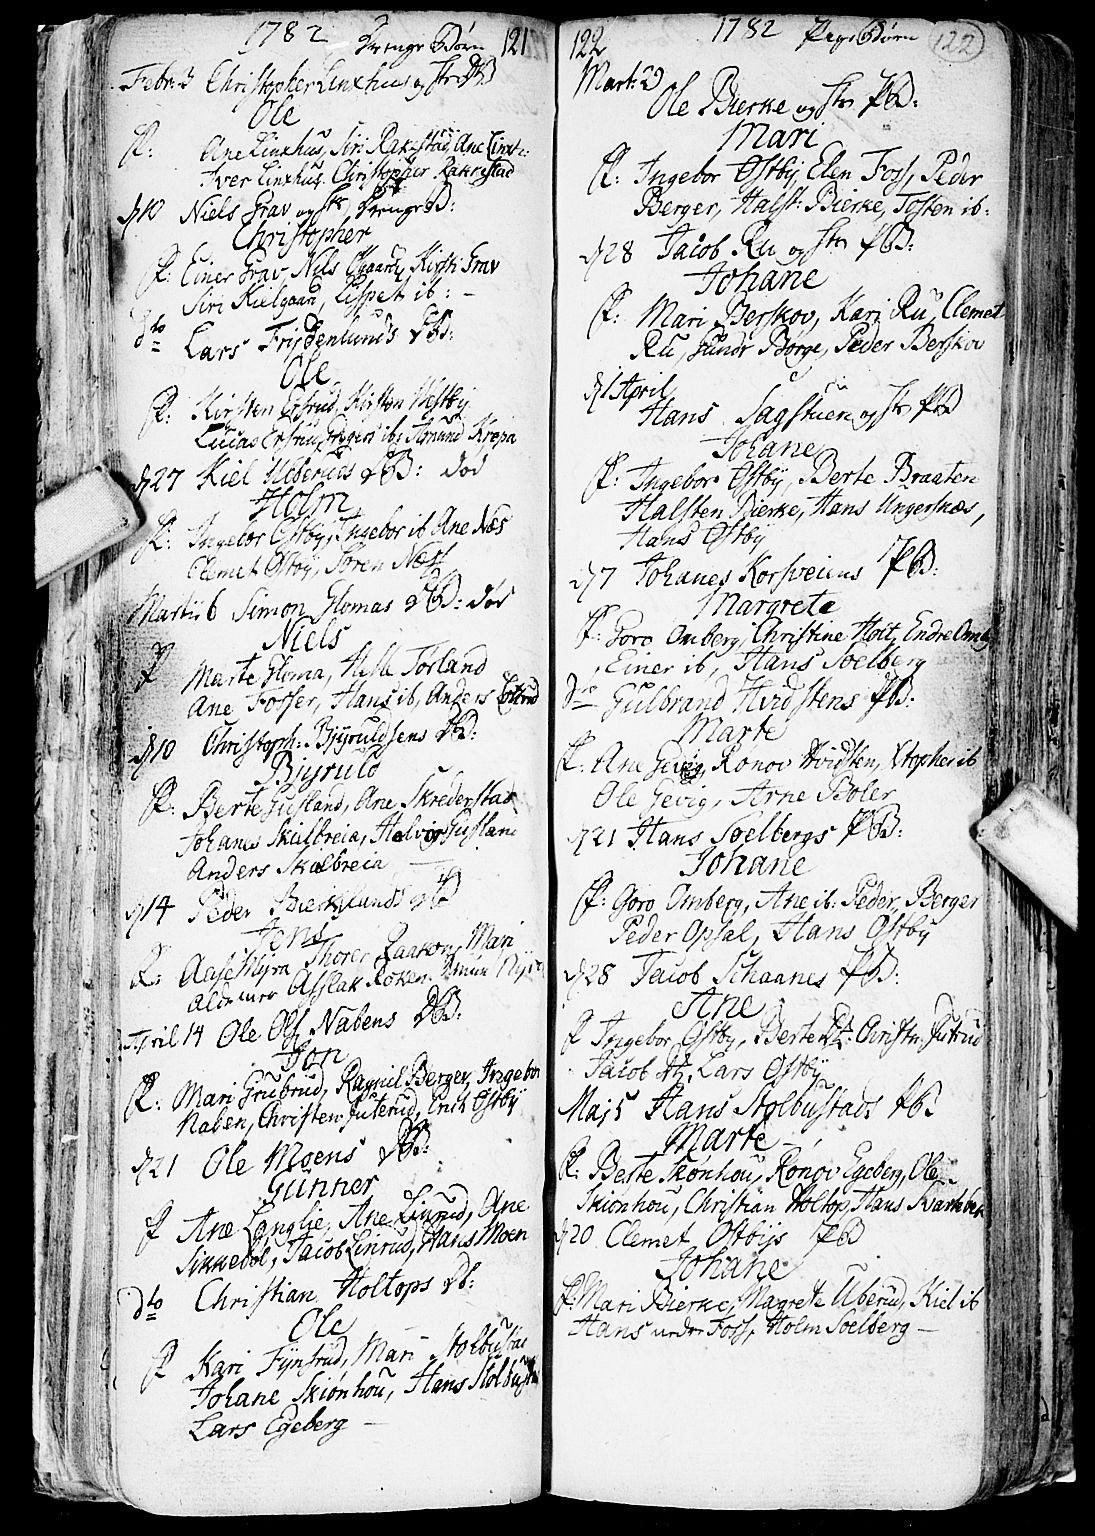 1782 Drenge Børn 121
Febr: 3 Christopher Linxhus og Hstr DB
Ole
ff: Ane Linxhus, Siri Rakestad, Ane Linx:
Iver Linxhus, Christopher Rakestad
d 10 Niels Grav og Hstr DrengeB:
Christopher
ff: Einer Grav Nils Kirsti Grav
Siri Kielgaard, Lispet ib: –
dto Lars Frydenlunds DB:
Ole
ff: Kirsten Ersrud, Kirsten Westby
Lucas Ersrud, ib: Amund Krepa
d 27 Kiel DB: død
Holm
ff: Ingebor Østby, Ingebor ib Ane Næs
Clemet Østby, Søren Næss
Martii 6 Simon Glomas DB: død
Niels
ff Marte Gloma, Helle Torland
Ane Fosser, Hans ib, Anders
d 10 Christoph: Biyruldsens DB:
Biyruld
ff: Berte Gusland, Ane Skrederstad
Johanes Skulbreia, Halvor Gusland
Anders Skalbreia
d 14 Peder Bierklunds DB
Jens
ff: Aase Myra Thorer Mari
Asslak
April 14 Ole Ols Nabens DB:
Jon
ff: Mari Grubrud, Ragnil Berger, Ingebor
Naben, Christen Juterud, Erich Østby
d 21 Ole Moens DB:
Gunner
ff Ane Langlie, Ane Linrud, Ane
Sikkebøl, Jacob Linrud, Hans Moen
dto Christian Holtops DB:
Ole
ff Kari Fynsrud, Mari Stolbustad
Johane Skiønhou, Hans Stolbustad
Lars Egeberg –
122 1782 Pige Børn 122
Mart: 29
Ole Bierke og Hstr PB:
Mari
ff: Ingebor Østby, Elen Foss, Peder
Berger, Halst: Bierke, Tosten ib:
d 28 Jacob Ru og Hstr PB:
Johane
ff: Mari Berskov, Kari Ru, Clemet
Ru, Gundr Børge, Peder Berskov
d 1 April
Hans Sagstuen og Hstr PB
Johane
ff: Ingebor Østby, Berte Braaten
Halsten Bierke, Hans Ungersnæs,
Hans Østby
d 7 Johanes Korsveiens PB:
Margrete
ff: Goro Omberg, Christine Holt, Endre Omberg
Einer ib, Hans Soelberg
dto Gulbrand Hvidstens PB:
Marte
ff: Ane Gevig, Ronov Hvidsten, Xtopher ib
Ole Gevig, Arne Boler
d 21 Hans Soelbergs PB:
Johane
ff: Goro Omberg, Ane ib: Peder Berger
Peder Opsal, Hans Østby
d 28 Jacob Schaanes PB:
Ane
ff Ingebor Østby, Berte Christn: Juterud
Jacob Lars Østby
Maj 5 Hans Stolbustads PB:
Marte
ff: Berte Skiønhou, Ronov Egeberg, Ole
Skiønhou, Christian Holtop, Hans
d 20 Clemet Østbys PB
Johane
ff: Mari Bierke, Magrete Uberud, Kiel ib
Hans under Foss, Holm Soelberg –